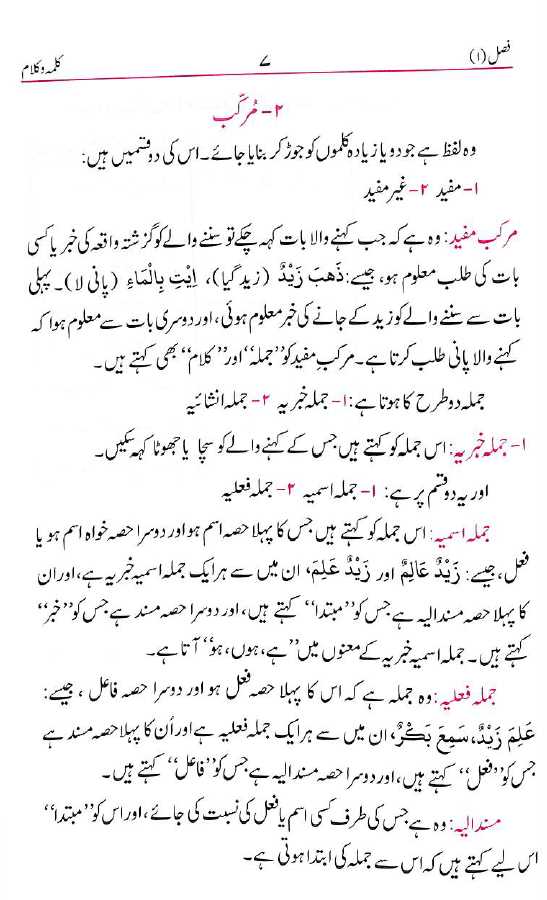 فصل (۱) ۷ کلمہ و کلام
۲- مُرکّب
وہ لفظ ہے جو دو یا زیادہ کلموں کو جوڑ کر بنایا جائے۔ اس کی دو قسمیں ہیں:
۱- مفید ۲- غیر مفید
مرکب مفید: وہ ہے کہ جب کہنے والا بات کہہ چکے تو سننے والے کو گزشتہ واقعہ کی خبر یا کسی
بات کی طلب معلوم ہو، جیسے: ذَهَبَ زَيْدٌ (زید گیا)، اِيْتِ بِالْمَاءِ (پانی لا)۔ پہلی
بات سے سننے والے کو زید کے جانے کی خبر معلوم ہوئی، اور دوسری بات سے معلوم ہوا کہ
کہنے والا پانی طلب کرتا ہے۔ مرکبِ مفید کو ”جملہ“ اور ”کلام“ بھی کہتے ہیں۔
جملہ دو طرح کا ہوتا ہے: ۱- جملہ خبریہ ۲- جملہ انشائیہ
۱- جملہ خبریہ: اس جملہ کو کہتے ہیں جس کے کہنے والے کو سچا یا جھوٹا کہہ سکیں۔
اور یہ دو قسم پر ہے: ۱- جملہ اسمیہ ۲- جملہ فعلیہ
جملہ اسمیہ: اس جملہ کو کہتے ہیں جس کا پہلا حصہ اسم ہو اور دوسرا حصہ خواہ اسم ہو یا
فعل، جیسے: زَيْدٌ عَالِمٌ اور زَيْدٌ عَلِمَ، ان میں سے ہر ایک جملہ اسمیہ خبریہ ہے، اور ان
کا پہلا حصہ مسند الیہ ہے جس کو ”مبتدا“ کہتے ہیں، اور دوسرا حصہ مسند ہے جس کو ”خبر“
کہتے ہیں۔ جملہ اسمیہ خبریہ کے معنوں میں ”ہے، ہوں، ہو“ آتا ہے۔
جملہ فعلیہ: وہ جملہ ہے کہ اس کا پہلا حصہ فعل ہو اور دوسرا حصہ فاعل، جیسے:
عَلِمَ زَيْدٌ، سَمِعَ بَكْرٌ، ان میں سے ہر ایک جملہ فعلیہ ہے اور اُن کا پہلا حصہ مسند ہے
جس کو ”فعل“ کہتے ہیں، اور دوسرا حصہ مسند الیہ ہے جس کو ”فاعل“ کہتے ہیں۔
مسند الیہ: وہ ہے جس کی طرف کسی اسم یا فعل کی نسبت کی جائے، اور اس کو ”مبتدا“
اس لیے کہتے ہیں کہ اس سے جملہ کی ابتدا ہوتی ہے۔